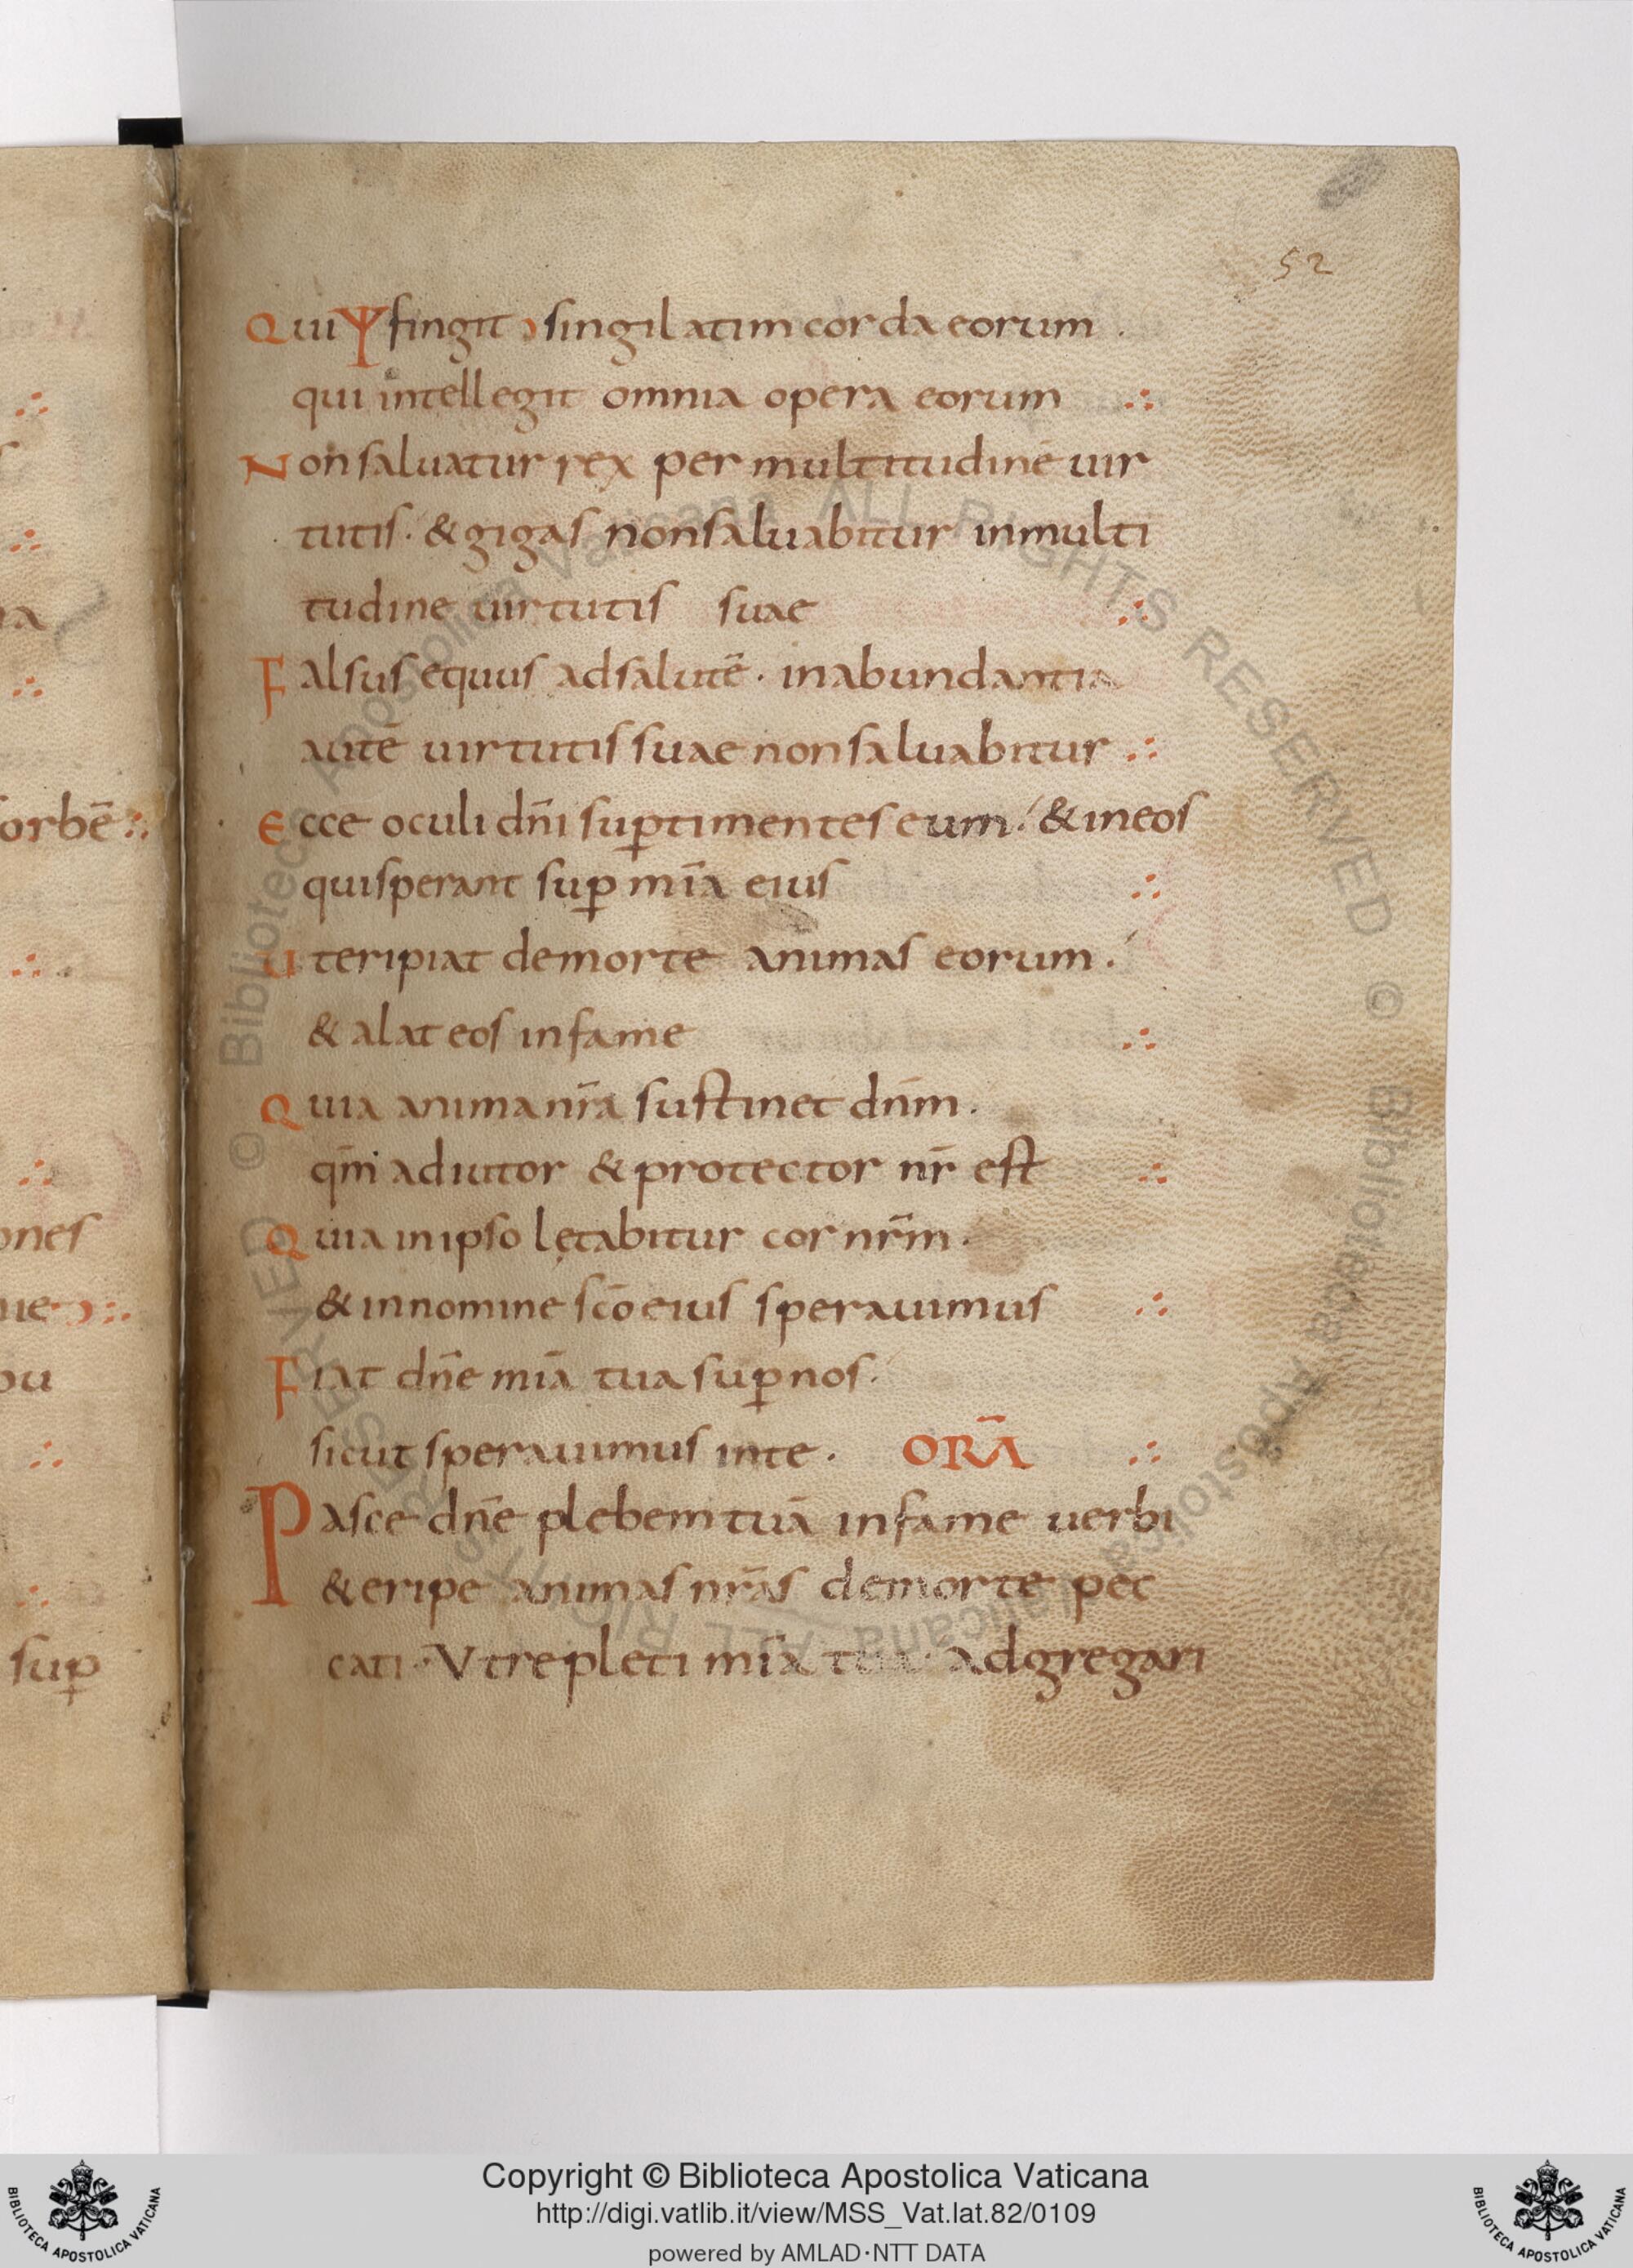 52
Qui Ψ fingit ) singilatim corda eorum .
qui intellegit omnia opera eorum ∴
Non saluatur rex per multitudinē uir
tutis · & gigas non saluabitur in multi
tudine uirtutis suae ∴
Falsus equus ad salutē · in abundantia
autē uirtutis suae non saluabitur ∴
Ecce oculi dn̄i sup̱ timentes eum · & in eos
qui sperant sup̱ mīa eius ∴
Ut eripiat de morte animas eorum .
& alat eos in fame ∴
Quia anima nr̄a sustinet dn̄m .
qm̄ adiutor & protector nr̄ est ∴
Quia in ipso lętabitur cor nr̄m .
& in nomine scō eius sperauimus ∴
Fiat dn̄e mīa tua sup̱ nos .
sicut sperauimus in te . ORĀ ∴
Pasce dn̄e plebem tuā in fame uerbi
& eripe animas nr̄as de morte pec
cati · Vt repleti mīa tua · adgregari
orbē ∴
ones
sup̱
© Biblioteca Apostolica Vaticana ALL RIGHTS RESERVED © Biblioteca Apostolica Vaticana ALL RIGHTS RESERVED
Copyright © Biblioteca Apostolica Vaticana
http://digi.vatlib.it/view/MSS_Vat.lat.82/0109
powered by AMLAD·NTT DATA
BIBLIOTECA APOSTOLICA VATICANA
BIBLIOTECA APOSTOLICA VATICANA